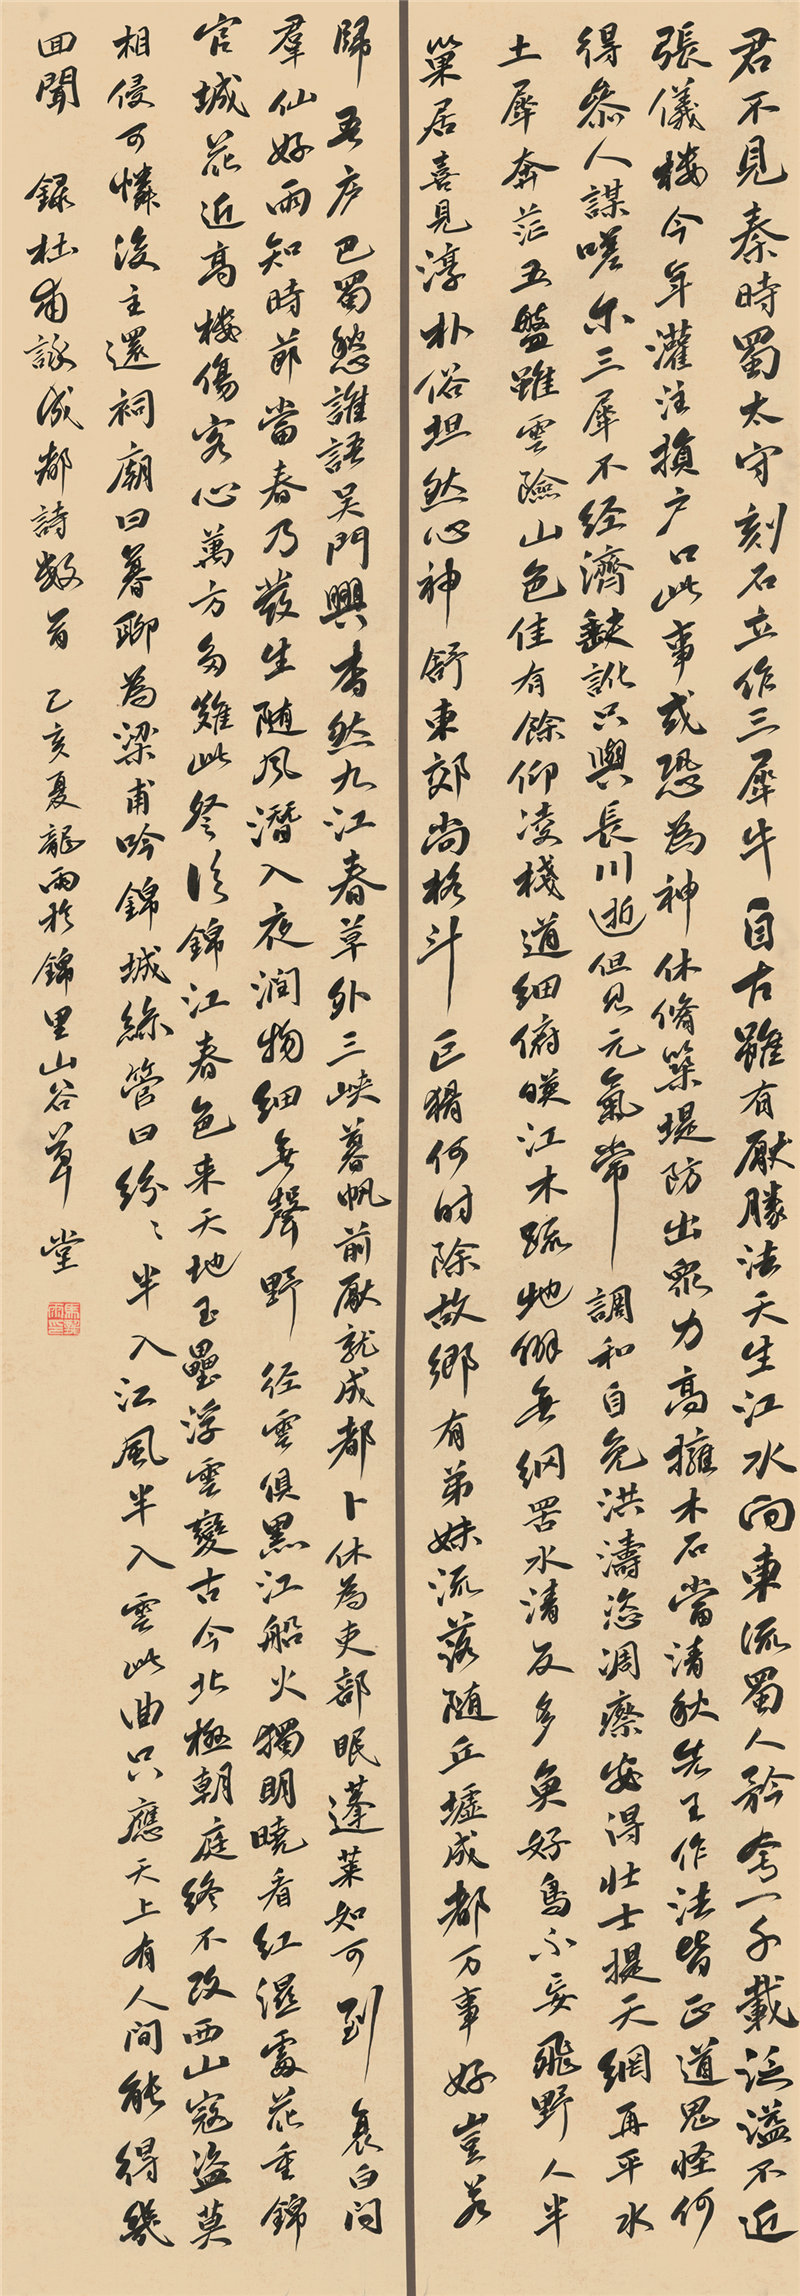 君不見秦時蜀太守刻石立作三犀牛自古雖有厭勝法天生江水向東流蜀人矜夸一千載泛溢不近
張儀樓今年灌注損戶口此事或恐為神休脩築堤防出眾力高擁木石當清秋先王作法皆正道鬼怪何
得參人謀嗟尔三犀不经濟缺訛只與長川逝但見元氣常調和自免洪濤恣凋瘵安得壯士提天網再平水
土犀奔茫五盤雖雲險山色佳有餘仰凌棧道細俯暎江木疏地僻無網罟水清反多魚好鳥不妄飛野人半
巢居喜見淳朴俗坦然心神舒東郊尚格斗巨猾何时除故鄉有弟妹流落随丘墟成都万事好豈若
歸吾庐巴蜀愁誰語吳門興杳然九江春草外三峽暮帆前厭就成都卜休為吏部眠蓬萊如可到衰白問
羣仙好雨知時節當春乃發生随风潛入夜润物细無聲野径雲俱黑江船火獨明曉看紅濕處花重錦
官城花近高樓傷客心萬方多難此登临錦江春色来天地玉壘浮雲變古今北極朝庭終不改西山寇盜莫
相侵可憐後主還祠廟日暮聊為梁甫吟錦城絲管日紛〻半入江風半入雲此曲只應天上有人間能得幾
回聞 録杜甫詠成都詩數首 己亥夏龍雨於錦里山谷草堂